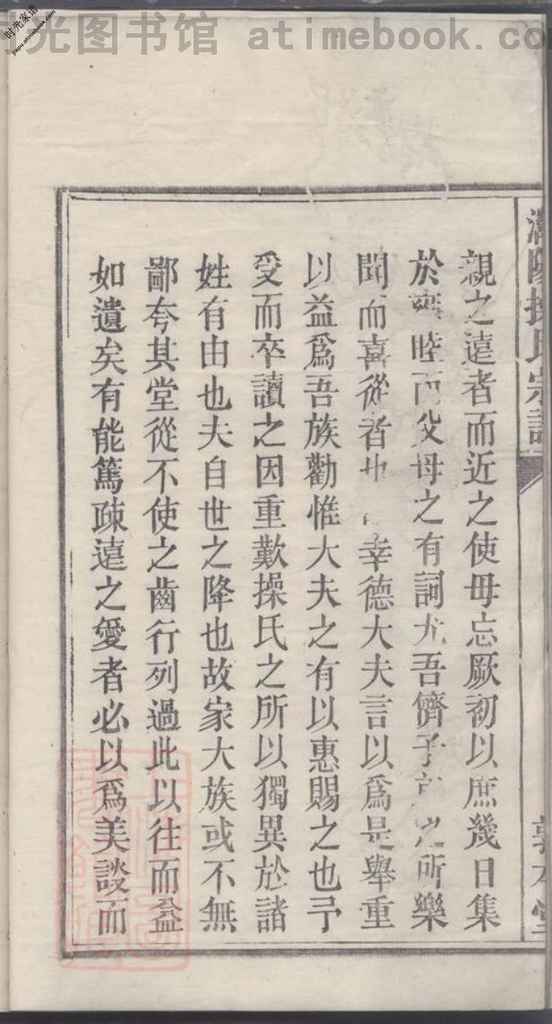 时光图书馆 atimebook.com
时光家谱
氏宗譜
親之遠者而近之使毋忘厥初以庶幾日集
於睦而父母之有詞尤吾儕子之所樂
聞而喜從者也幸德大夫言以爲是舉重
以益爲吾族勸惟大夫之有以惠賜之也予
受而卒讀之因重歎操氏之所以獨異於諸
姓有由也夫自世之降也故家大族或不無
鄙夸其堂從不使之齒行列過此以往而益
如遺矣有能篤疎遠之愛者必以爲美談而